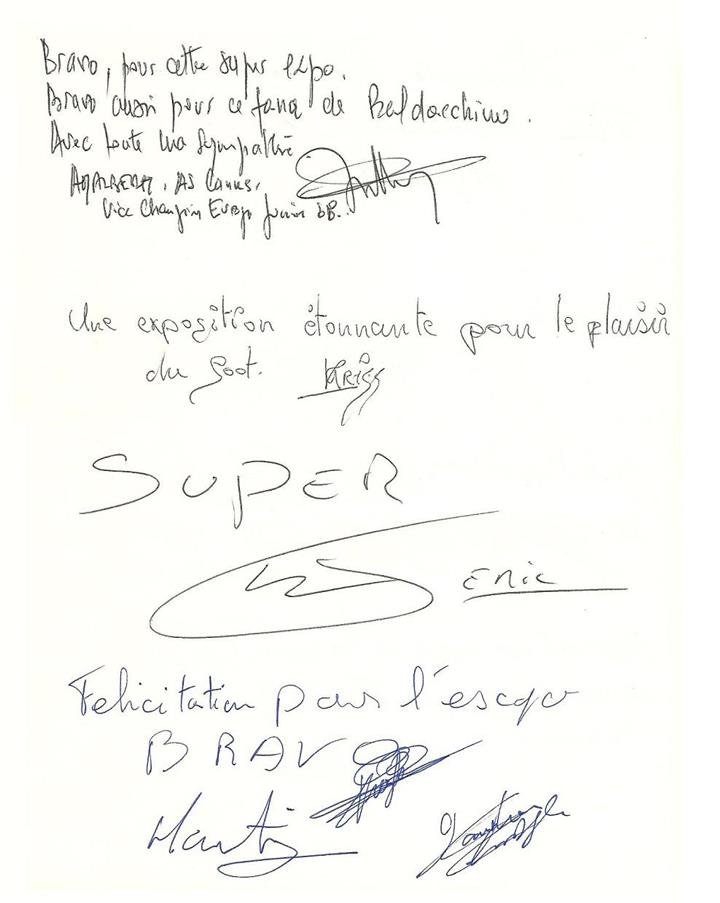 Bravo, pour cette super expo.
Bravo aussi pour ce fana de Baldacchino.
Avec toute ma sympathie
AS Cannes.
Vice Champion Europe Junior
Une exposition étonnante pour le plaisir
du foot. KRISS
SUPER
ERIC
Felicitation pour l'escapo
BRAVO
Martin